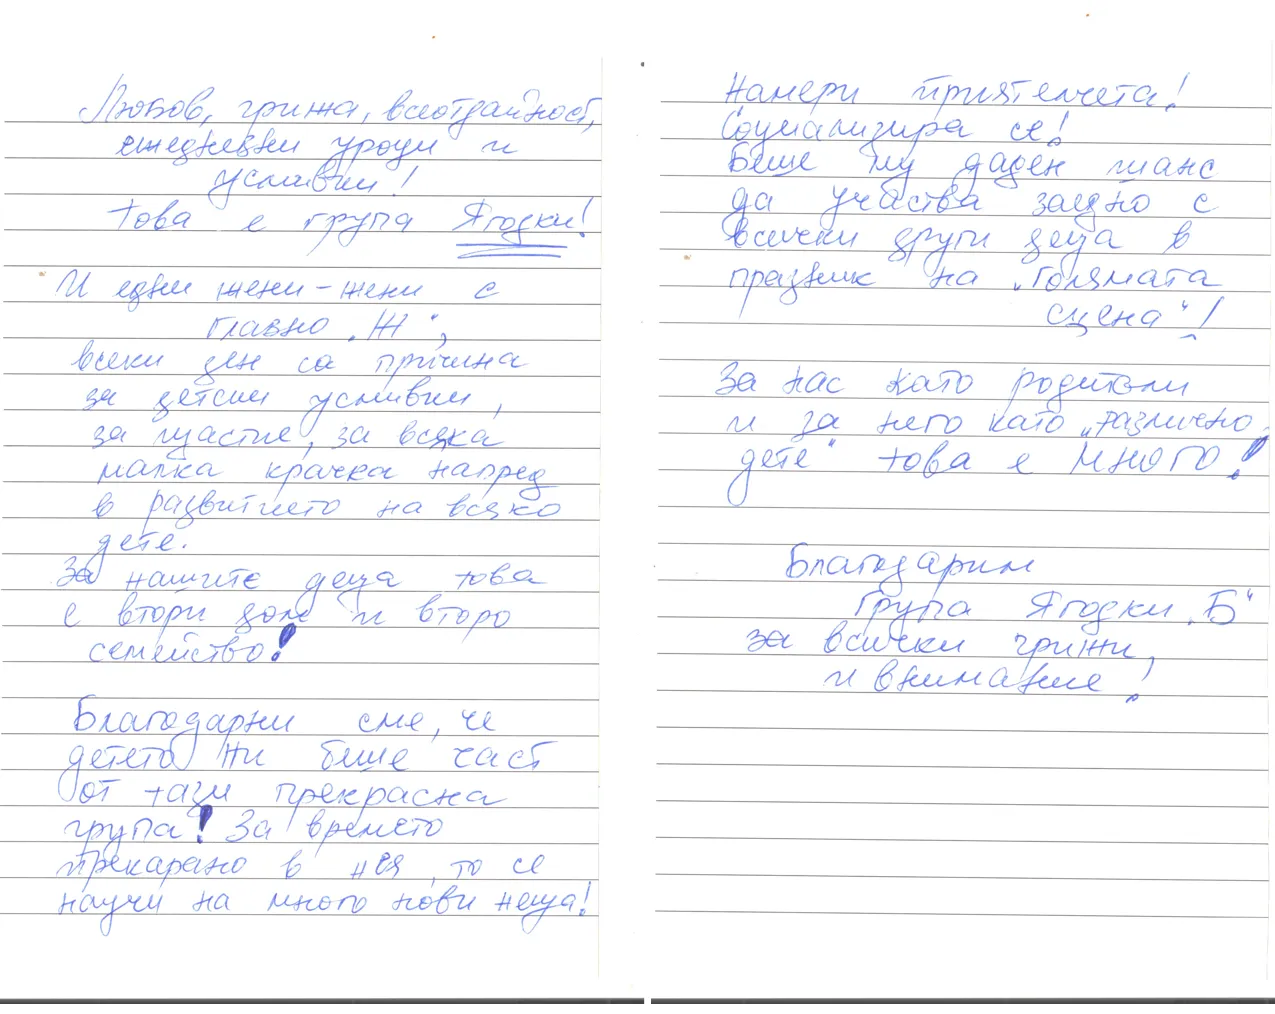 Любов, грижа, всеотдайност,
ежедневни уроци и
усмивки!
Това е група Ягодки!
И едни жени-жени с
главно „Ж",
всеки ден са причина
за детски усмивки,
за щастие, за всяка
малка крачка напред
в развитието на всяко
дете.
За нашите деца това
е втори дом и второ
семейство!
Благодарни сме, че
детето ни беше част
от тази прекрасна
група! За времето
прекарано в нея, то се
научи на много нови неща!
Намери приятелчета!
Социализира се!
Беше му даден шанс
да участва заедно с
всички други деца в
празник на „Голямата
сцена"!
За нас като родители
и за него като „различно
дете" това е МНОГО!
Благодарим
група Ягодки „Б"
за всички грижи,
и внимание!